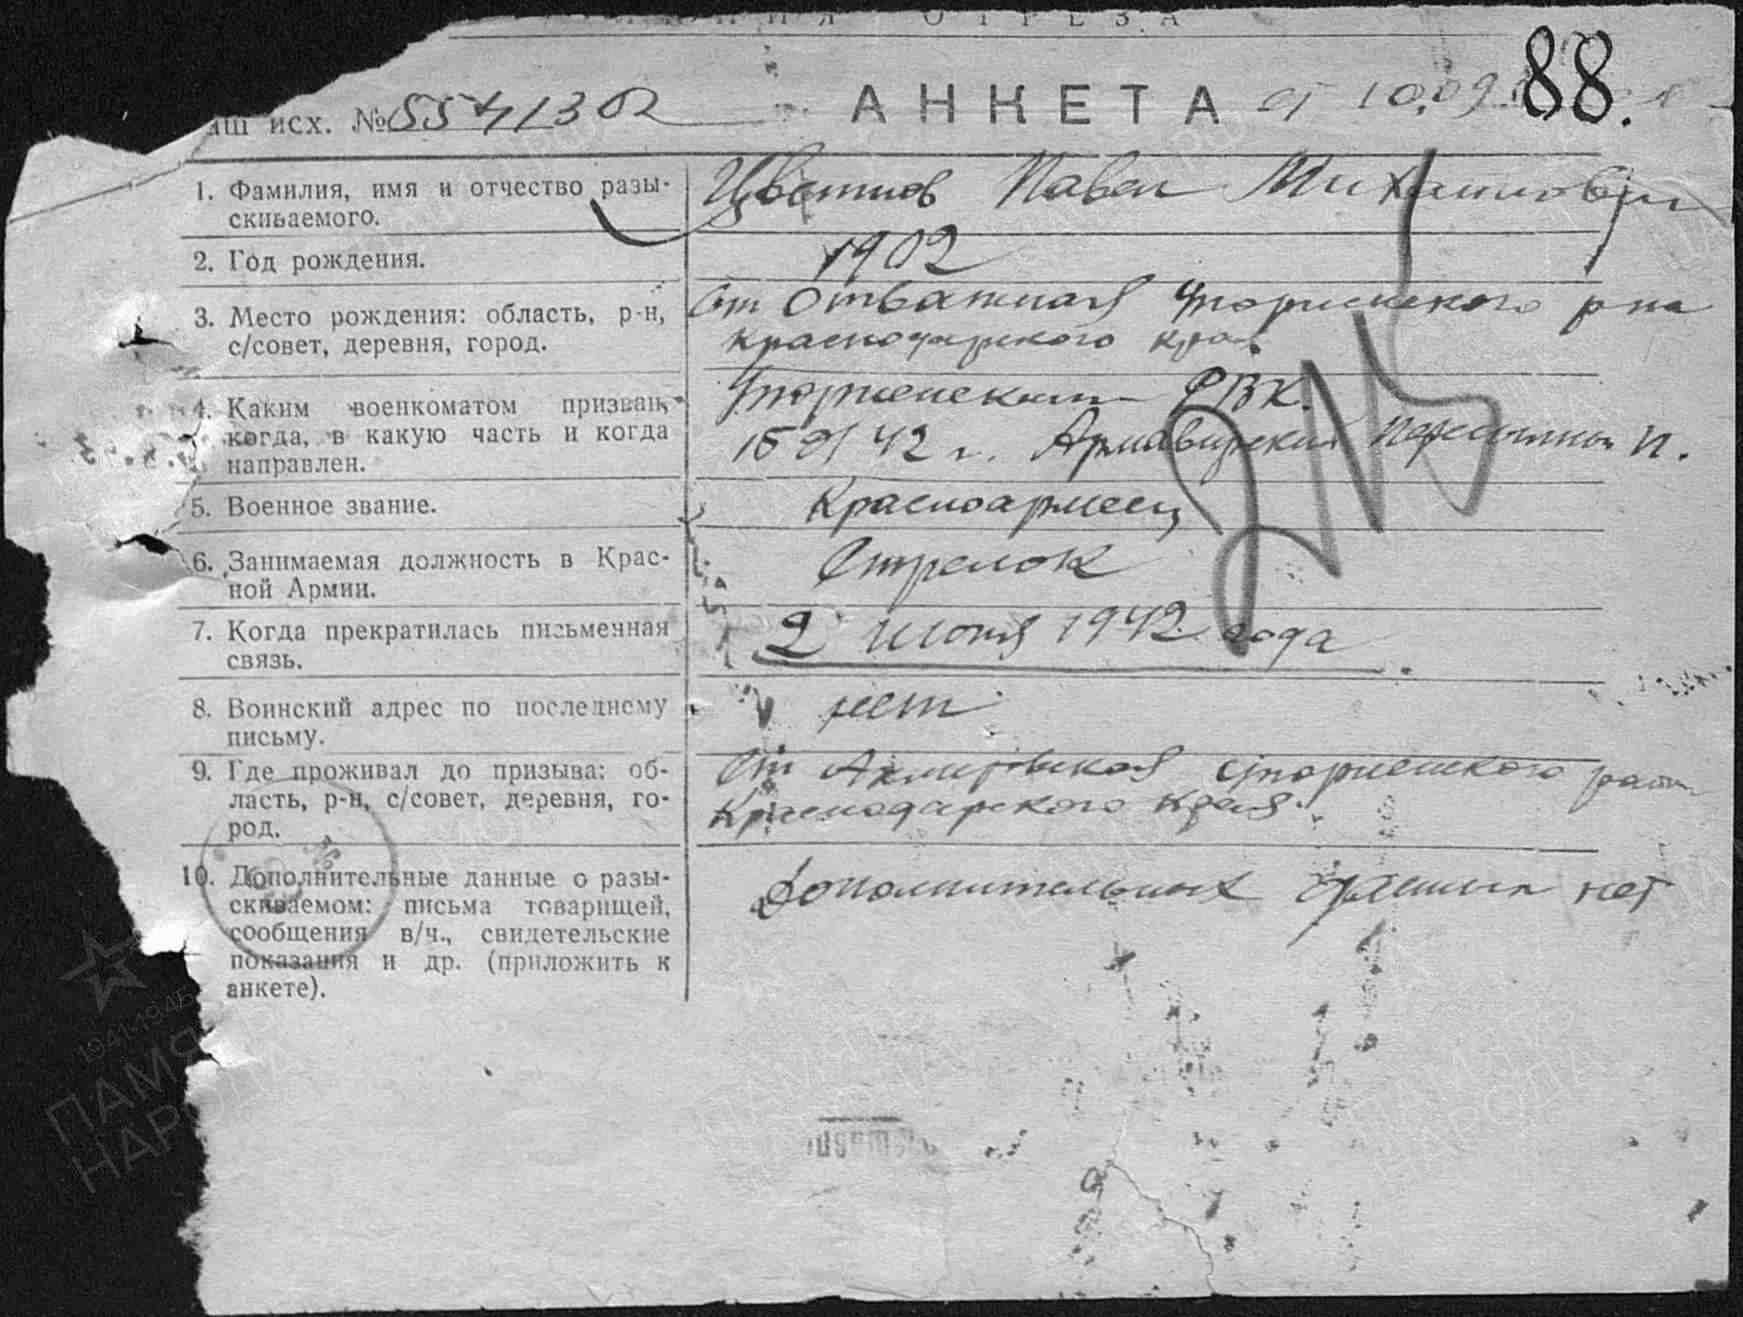 ЛИНИЯ ОТРЕЗА
88.
аш исх. № 5541302 АНКЕТА от 10.09
1. Фамилия, имя и отчество разы-
скиваемого.
Цветков Павел Михайлович
2. Год рождения.
1902
3. Место рождения: область, р-н,
с/совет, деревня, город.
ст Отважная Упорненского р на
Краснодарского края
4. Каким военкоматом призван,
когда, в какую часть и когда
направлен.
Упорненским РВК.
42 г. Армавирский Пересыльный п.
5. Военное звание.
Красноармеец
6. Занимаемая должность в Крас-
ной Армии.
Стрелок
7. Когда прекратилась письменная
связь.
2 июня 1942 года
8. Воинский адрес по последнему
письму.
нет
9. Где проживал до призыва: об-
ласть, р-н, с/совет, деревня, го-
род.
ст Ахметовская Упорненского
Краснодарского края.
10. Дополнительные данные о разы-
скиваемом: письма товарищей,
сообщения в/ч., свидетельские
показания и др. (приложить к
анкете).
Дополнительных данных нет
1941-1945
ПАМЯТЬ
НАРОДА